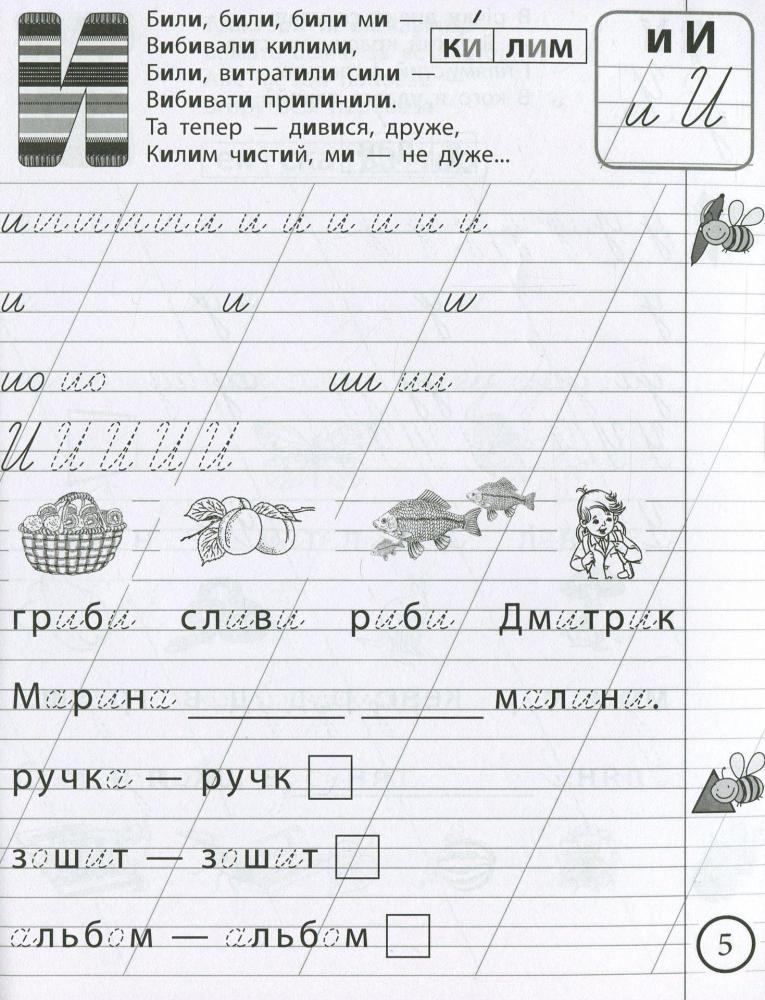 И
Били, били, били ми —
Вибивали килими,
Били, витратили сили —
Вибивати припинили.
Та тепер — дивися, друже,
Килим чистий, ми — не дуже...
ки́ лим
и И
и И
и и и и и и и и и и и и
и и и
ио ио ии ии
И И И И И
гриби сливи риби Дмитрик
Марина малини.
ручка — ручк
зошит — зошит
альбом — альбом
5